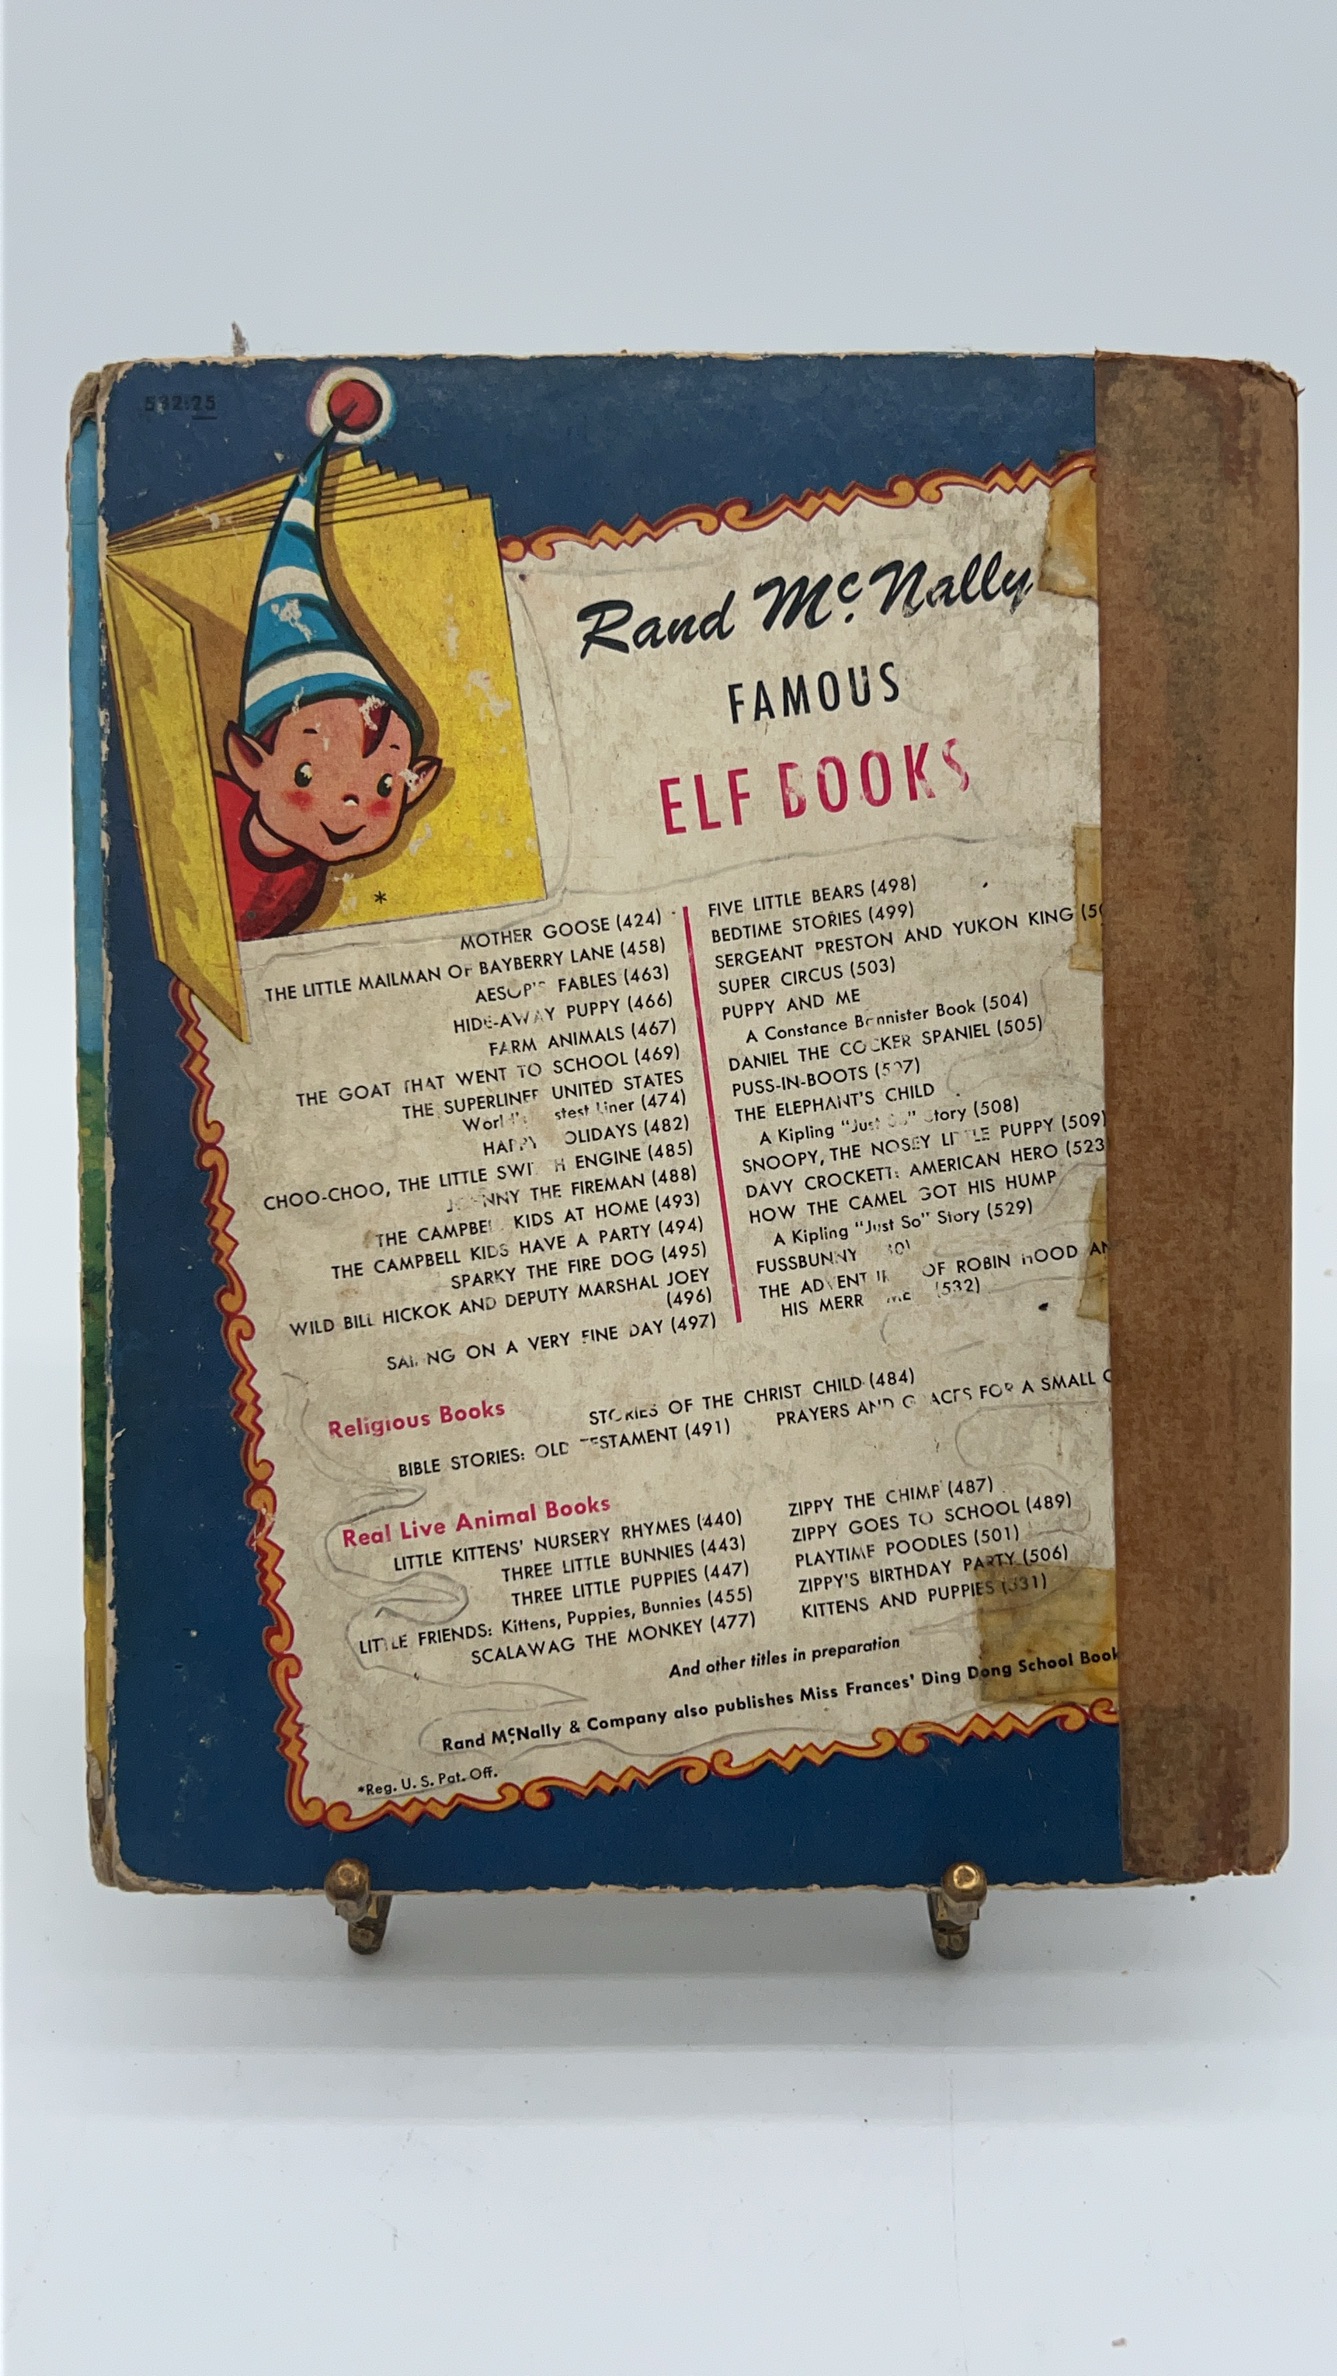 532:25
Rand McNally
FAMOUS
ELF BOOKS
*
MOTHER GOOSE (424)
THE LITTLE MAILMAN OF BAYBERRY LANE (458)
AESOP'S FABLES (463)
HIDE-AWAY PUPPY (466)
FARM ANIMALS (467)
THE GOAT THAT WENT TO SCHOOL (469)
THE SUPERLINER UNITED STATES
Liner (474)
HAPPY HOLIDAYS (482)
CHOO-CHOO, THE LITTLE SWITCH ENGINE (485)
JOHNNY THE FIREMAN (488)
THE CAMPBELL KIDS AT HOME (493)
THE CAMPBELL KIDS HAVE A PARTY (494)
SPARKY THE FIRE DOG (495)
WILD BILL HICKOK AND DEPUTY MARSHAL JOEY
(496)
SAILING ON A VERY FINE DAY (497)
FIVE LITTLE BEARS (498)
BEDTIME STORIES (499)
SERGEANT PRESTON AND YUKON KING
SUPER CIRCUS (503)
PUPPY AND ME
A Constance Bannister Book (504)
DANIEL THE COCKER SPANIEL (505)
PUSS-IN-BOOTS (507)
THE ELEPHANT'S CHILD
A Kipling "Just So" Story (508)
SNOOPY, THE NOSEY LITTLE PUPPY (509)
DAVY CROCKETT: AMERICAN HERO (523
HOW THE CAMEL GOT HIS HUMP
A Kipling "Just So" Story (529)
FUSSBUNNY
THE ADVENTURES OF ROBIN HOOD
HIS MERRY MEN (532)
Religious Books
STORIES OF THE CHRIST CHILD (484)
BIBLE STORIES: OLD TESTAMENT (491)
PRAYERS AND GRACES FOR A SMALL
Real Live Animal Books
LITTLE KITTENS' NURSERY RHYMES (440)
THREE LITTLE BUNNIES (443)
THREE LITTLE PUPPIES (447)
LITTLE FRIENDS: Kittens, Puppies, Bunnies (455)
SCALAWAG THE MONKEY (477)
ZIPPY THE CHIMP (487)
ZIPPY GOES TO SCHOOL (489)
PLAYTIME POODLES (501)
ZIPPY'S BIRTHDAY PARTY (506)
KITTENS AND PUPPIES (531)
And other titles in preparation
Rand McNally & Company also publishes Miss Frances' Ding Dong School Book
*Reg. U. S. Pat. Off.